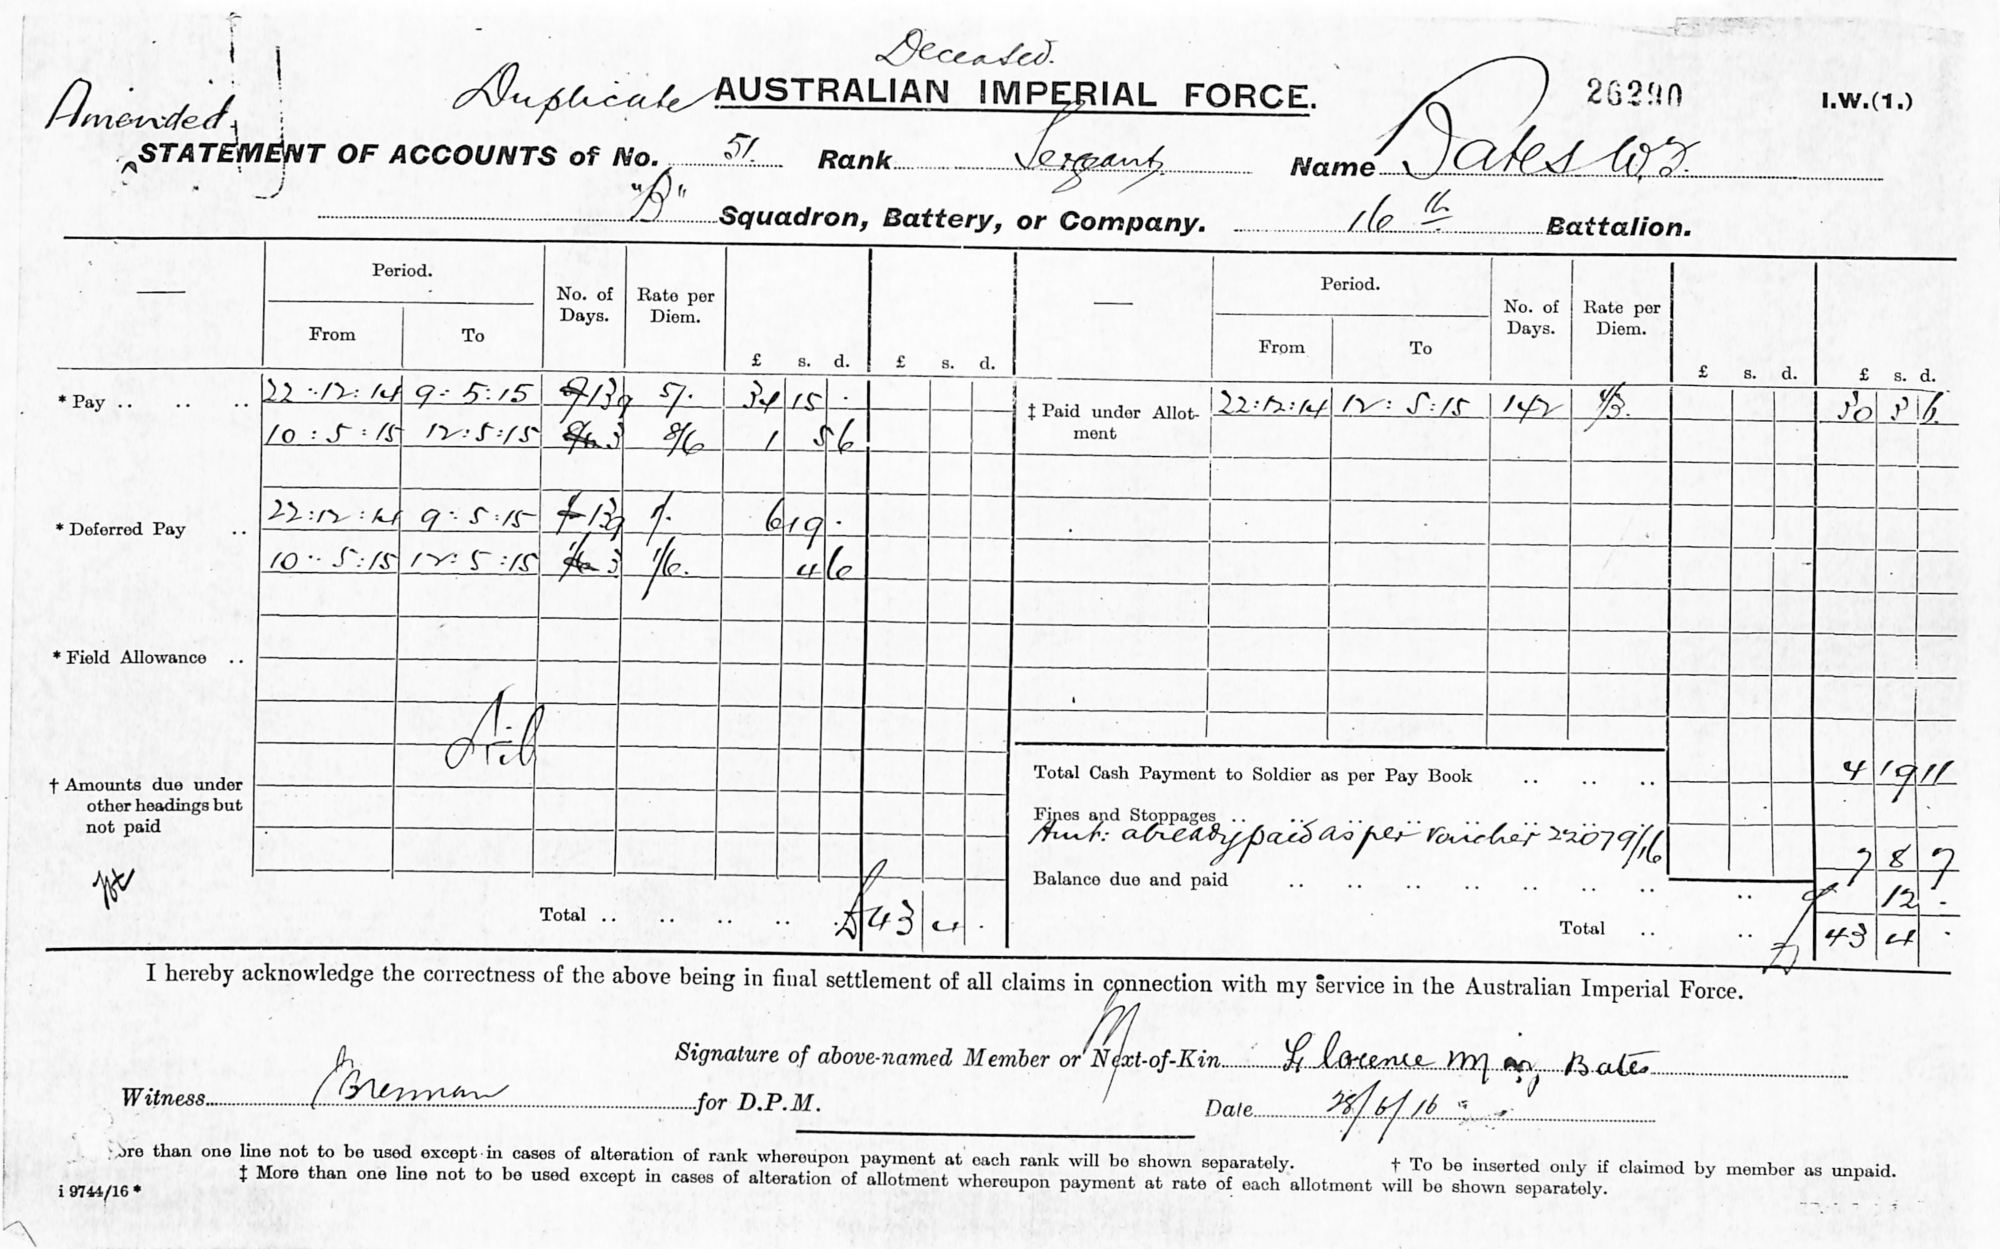 Deceased.
Amended Duplicate AUSTRALIAN IMPERIAL FORCE. 26290 I.W.(1.)
STATEMENT OF ACCOUNTS of No. 51. Rank Sergant Name Bates W.
"B" Squadron, Battery, or Company. 16th Battalion.
Period. No. of Days. Rate per Diem. Period. No. of Days. Rate per Diem.
From To £ s. d. £ s. d. From To £ s. d. £ s. d.
* Pay .. .. .. 22:12:14 9:5:15 139 5/. 34 15 . ‡ Paid under Allotment 22:12:14 12:5:15 142 4/3. 30 3 6
10:5:15 12:5:15 3 8/6 1 5 6
* Deferred Pay .. 22:12:14 9:5:15 139 1/. 6 19 .
10:5:15 12:5:15 3 1/6. 4 6
* Field Allowance ..
Nil
† Amounts due under other headings but not paid
Total Cash Payment to Soldier as per Pay Book .. .. .. 4 19 11
Fines and Stoppages ..
Amt: already paid as per voucher 22079/16 7 8 7
Balance due and paid .. .. .. .. .. .. .. .. 12 .
Total .. .. .. .. £43 4 . Total .. .. £ 43 4 .
I hereby acknowledge the correctness of the above being in final settlement of all claims in connection with my service in the Australian Imperial Force.
Signature of above-named Member or Next-of-Kin Florence May Bates
Witness Brennan for D.P.M. Date 28/6/16
ore than one line not to be used except in cases of alteration of rank whereupon payment at each rank will be shown separately. † To be inserted only if claimed by member as unpaid.
‡ More than one line not to be used except in cases of alteration of allotment whereupon payment at rate of each allotment will be shown separately.
i 9744/16 *